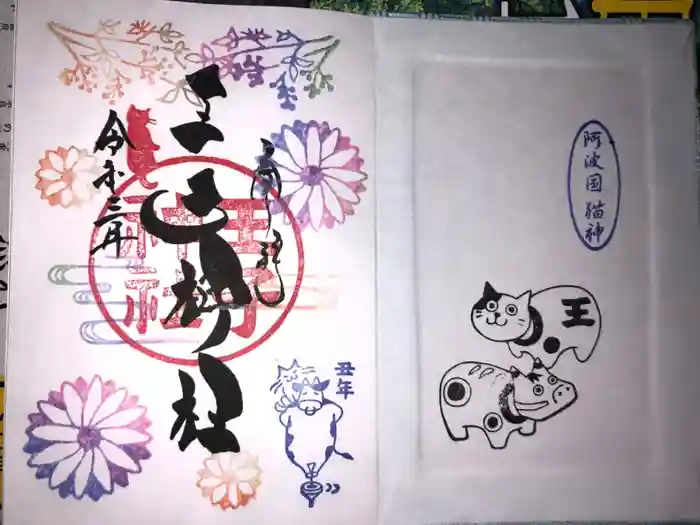 王子神社
令和三年
丑年
阿波国猫神
王